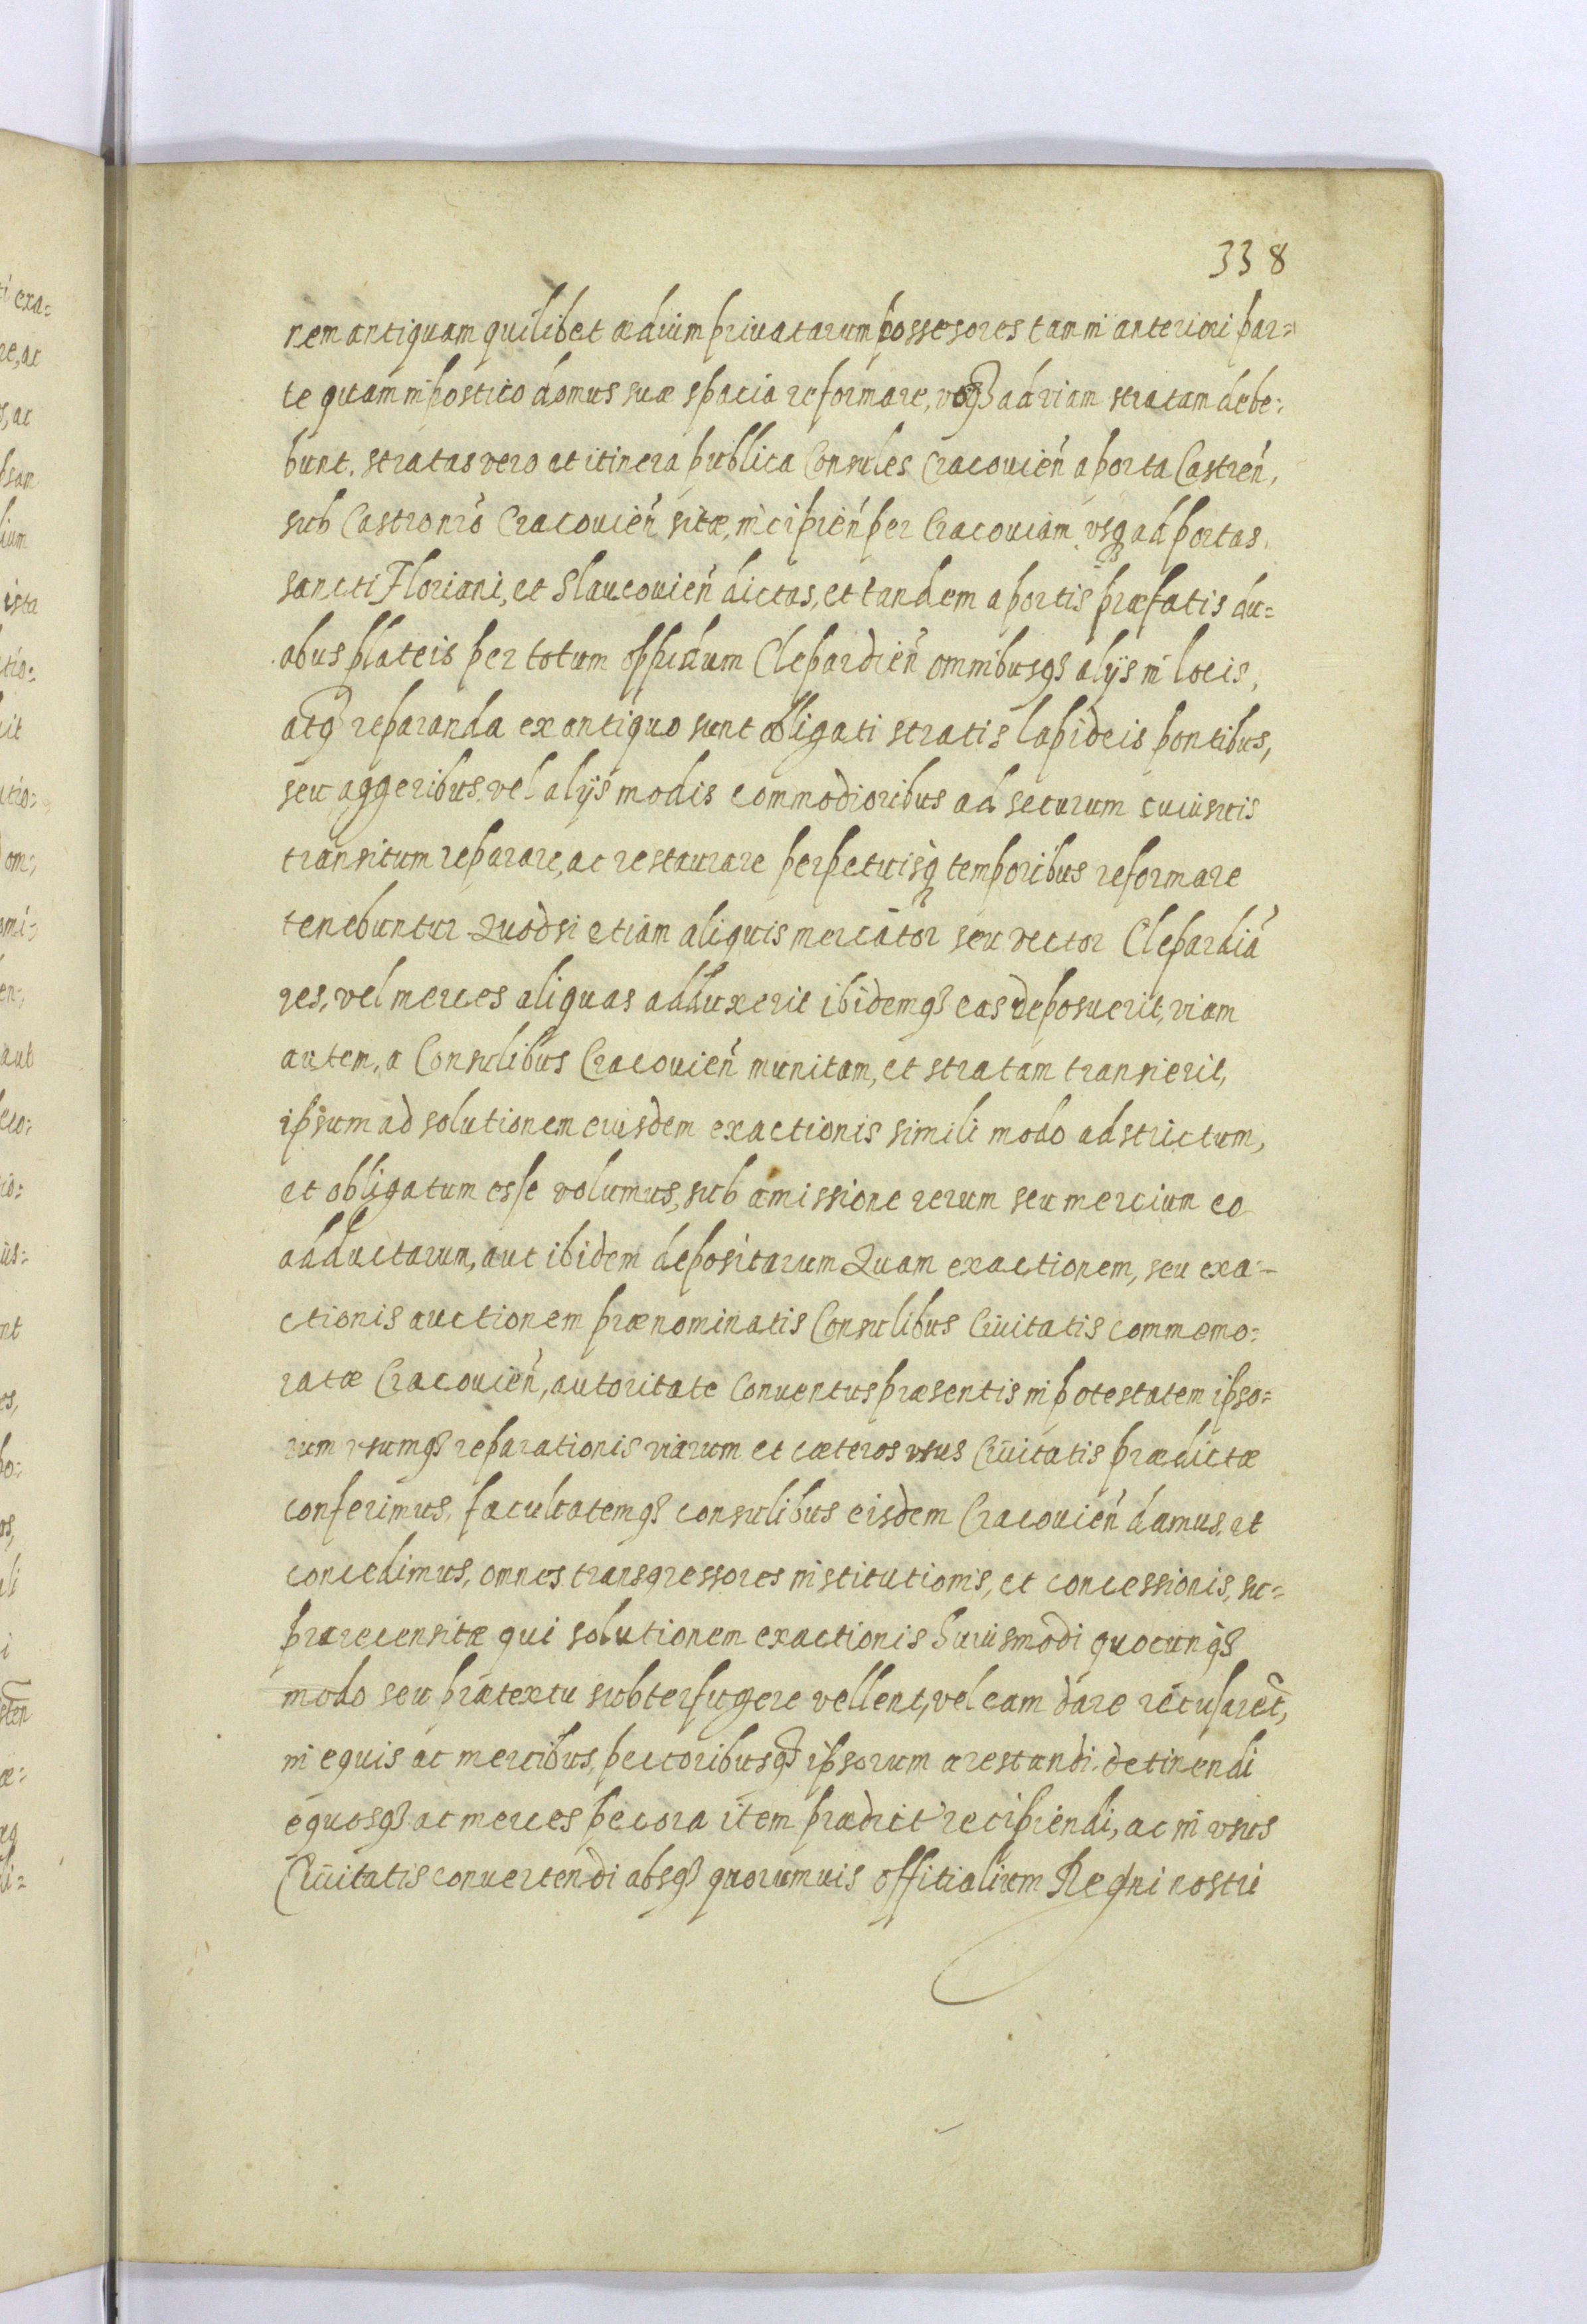 338
nem antiquam quilibet ædium priuatarum possesores tam in anteriori par=
te quam in postico domus suæ spacia reformare, vsq3 ad viam stratam debe:
bunt. stratas vero at itinera publica Consules Cracouień a porta Castreń,
sub Castro nr̃o Cracouień sitæ, incipień per Cracouiam vsq3 ad portas
sancti Floriani, et Slaucouień dictas, et tandem a portis præfatis du=
abus plateis per totum oppidum Clepardień omnibusq3 alijs in locis,
atq3 reparanda ex antiquo sunt obligati stratis lapideis pontibus,
seu aggeribus vel alijs modis commodioribus ad securum cuiusuis
transitum reparare, ac restaurare perpetuisq3 temporibus reformare
tenebuntur Quodsi etiam aliquis mercator seu vector Clepardiã
res, vel merces aliquas adduxerit ibidemq3 eas deposuerit, viam
autem, a Consulibus Cracouień munitam, et stratam transierit,
ipsum ad solutionem eiusdem exactionis simili modo adstrictum,
et obligatum esse volumus, sub amissione rerum seu mercium eo
adductarum, aut ibidem depositarum Quam exactionem, seu exa=
ctionis auctionem prænominatis Consulibus Ciuitatis commemo:
ratæ Cracouień, autoritate Conuentus præsentis in potestatem ipso=
rum vsumq3 reparationis viarum et cæteros vsus Ciuitatis prædictæ
conferimus, facultatemq3 consulibus eisdem Cracouień damus, et
concedimus, omnes transgressores institutionis, et concessionis, su=
prarecensitæ qui solutionem exactionis huiusmodi quocunq3
modo seu prætextu subterfugere vellent, vel eam dare recusaret,
in equis ac mercibus, pectoribusq3 ipsorum arestandi, detinendi
equosq3 ac merces pecora item prædict' recipiendi, ac in vsus
Ciuitatis conuertendi absq3 quorumuis offitialium Regni nostri